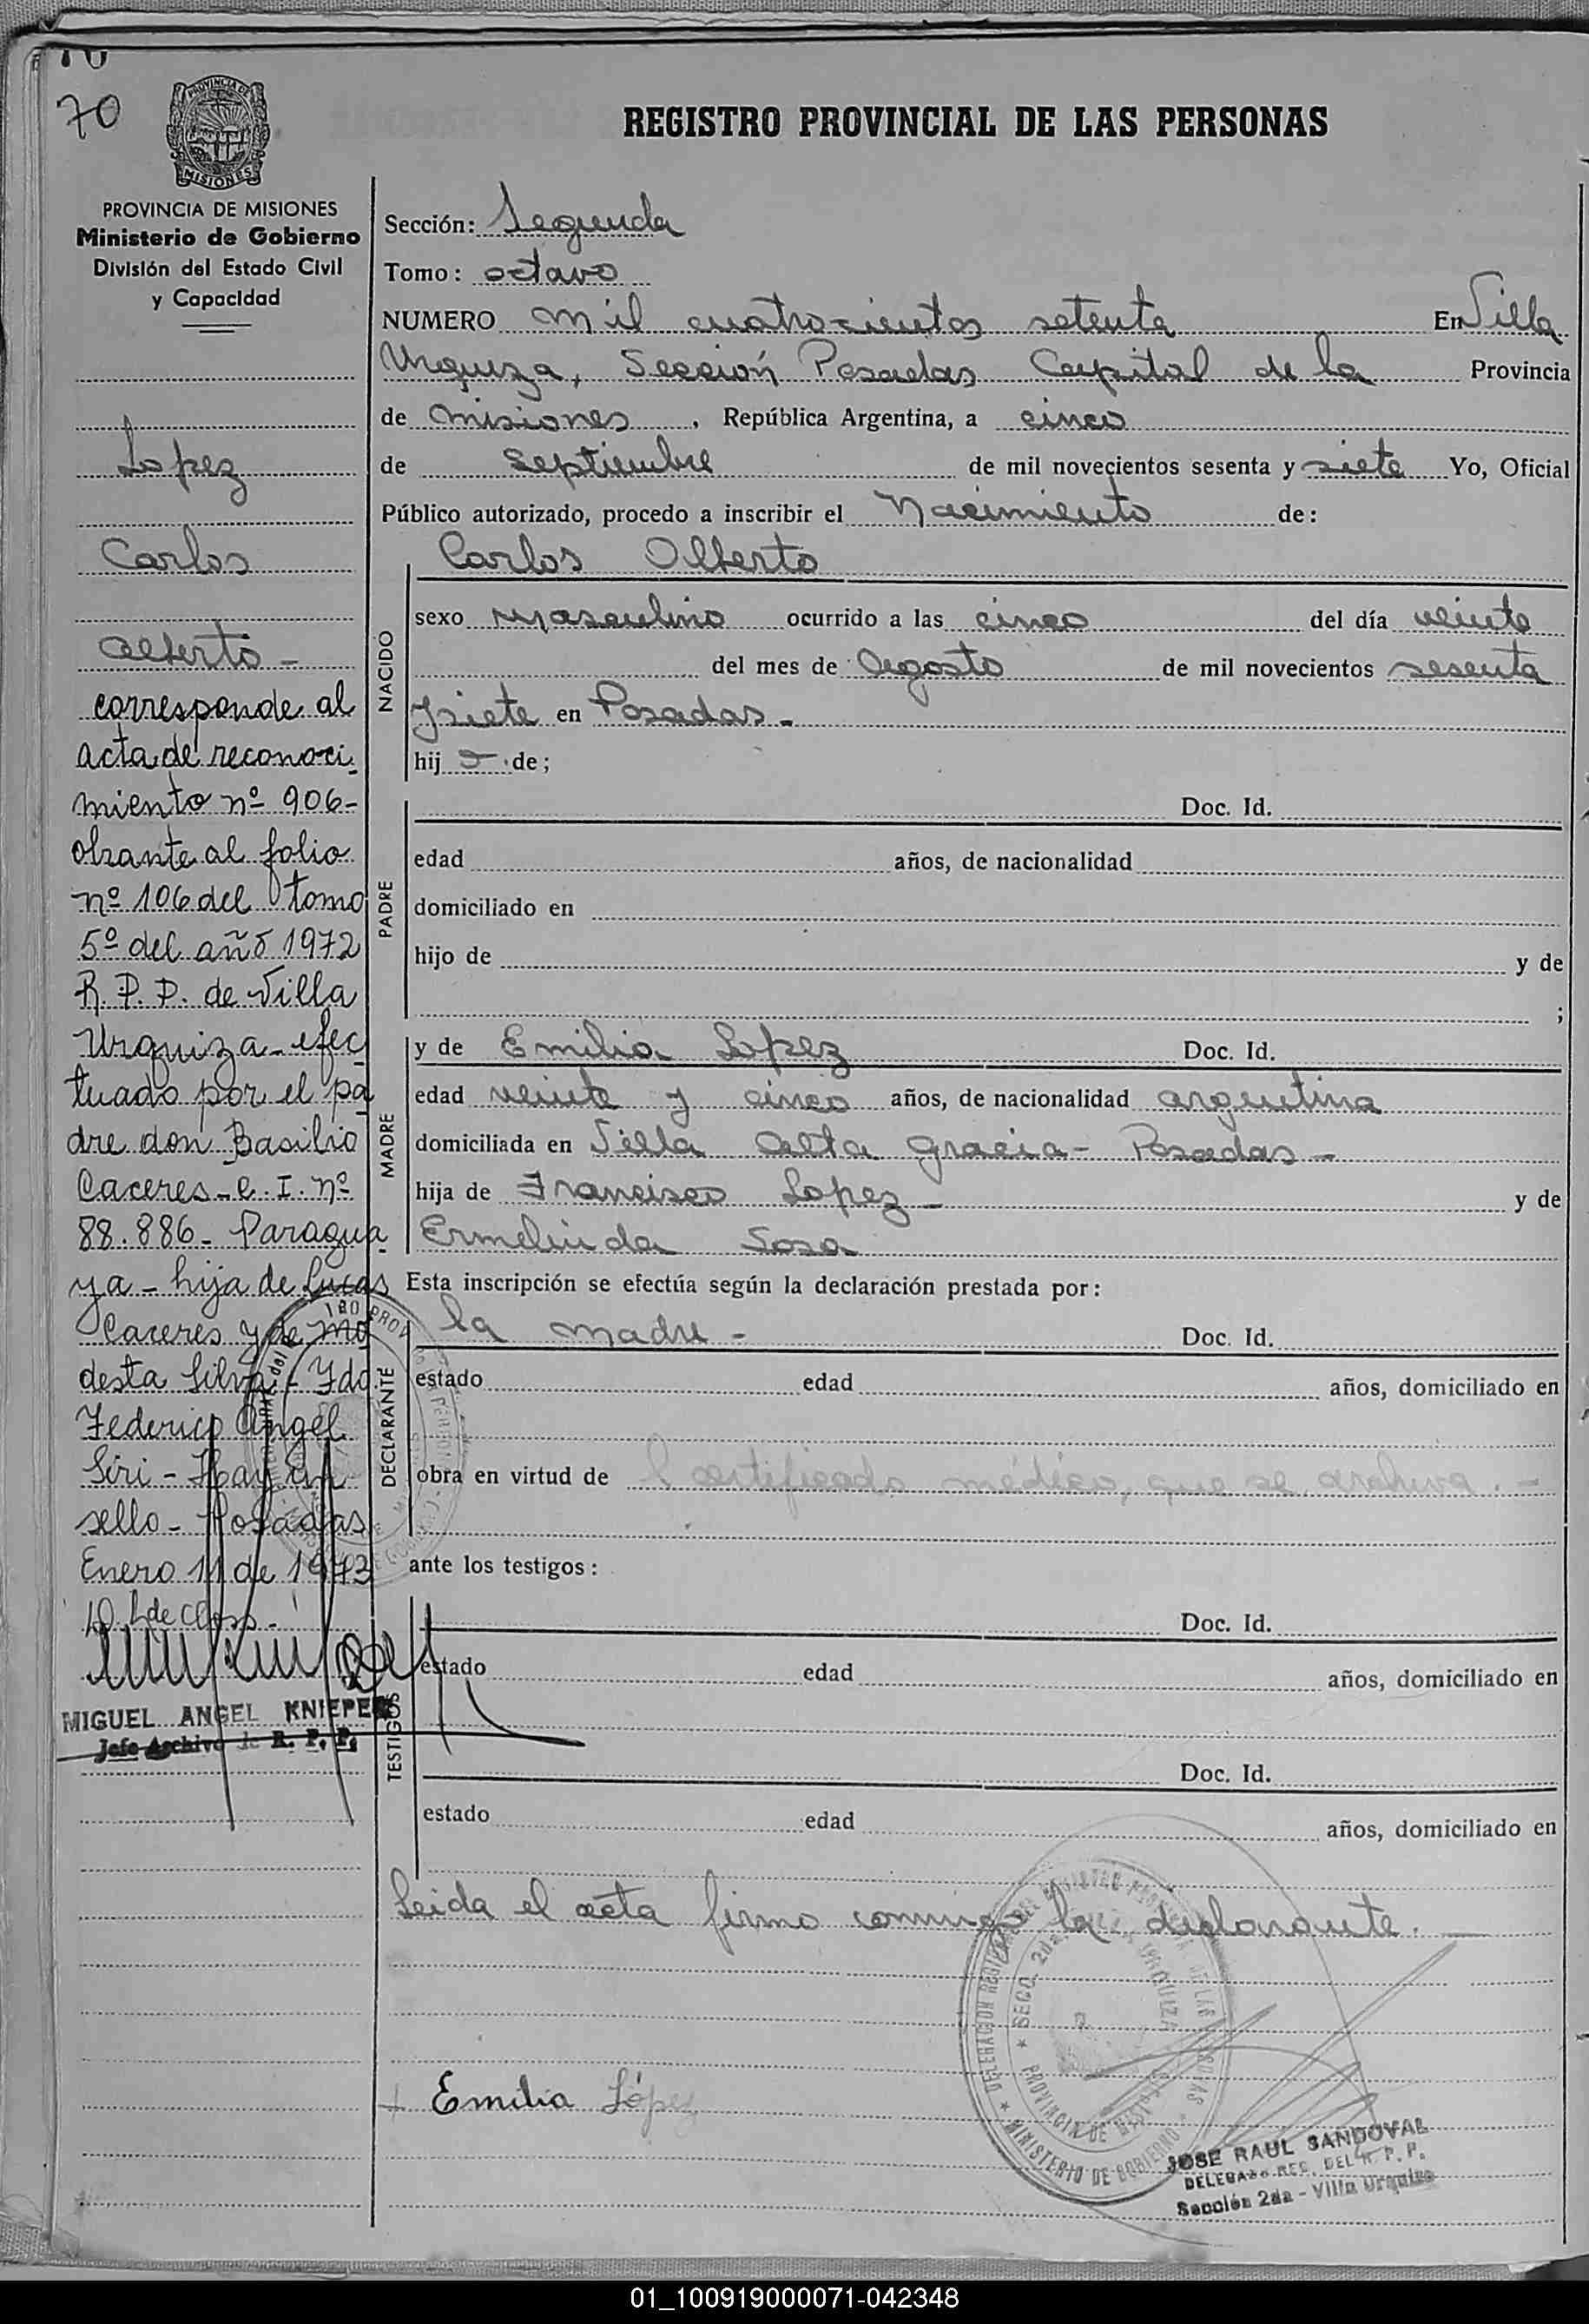 70
PROVINCIA DE
MISIONES
PROVINCIA DE MISIONES
Ministerio de Gobierno
División del Estado Civil
y Capacidad
Lopez
Carlos
Alberto -
corresponde al
acta de reconoci-
miento nº 906-
obrante al folio
nº 106 del tomo
5º del año 1972
R. P. P. de Villa
Urquiza - efec
tuado por el pa
dre don Basilio
Caceres - C. I. nº
88.886 - Paragua
ya - hija de Lucas
Caceres y de Mo
desta Silva - Fdo.
Federico Angel
Siri - Hay un
sello - Posadas
Enero 11 de 1973
MIGUEL ANGEL KNIEPER
Jefe Archivo de R. P. P.
REGISTRO PROVINCIAL DE LAS PERSONAS
Sección: Segunda
Tomo: octavo
NUMERO mil cuatrocientos setenta En Villa
Urquiza, Sección Posadas Capital de la Provincia
de Misiones, República Argentina, a cinco
de Septiembre de mil novecientos sesenta y siete Yo, Oficial
Público autorizado, procedo a inscribir el Nacimiento de:
NACIDO
Carlos Alberto
sexo masculino ocurrido a las cinco del día veinte
del mes de Agosto de mil novecientos sesenta
y siete en Posadas -
hij o de;
PADRE
Doc. Id.
edad años, de nacionalidad
domiciliado en
hijo de y de
;
MADRE
y de Emilia Lopez Doc. Id.
edad veinte y cinco años, de nacionalidad argentina
domiciliada en Villa Alta Gracia - Posadas -
hija de Francisco Lopez - y de
Ermelinda Sosa
Esta inscripción se efectúa según la declaración prestada por:
DECLARANTE
la madre - Doc. Id.
estado edad años, domiciliado en
obra en virtud de l certificado médico, que se archiva. -
ante los testigos:
TESTIGOS
Doc. Id.
estado edad años, domiciliado en
Doc. Id.
estado edad años, domiciliado en
Leida el acta firma conmigo la declarante. -
Emilia López
SECC. 2da URQUIZA
PROVINCIA DE MISIONES
MINISTERIO DE GOBIERNO
JOSE RAUL SANDOVAL
DELEGADO REG. DEL R. P. P.
Sección 2da - Villa Urquiza
01_100919000071-042348